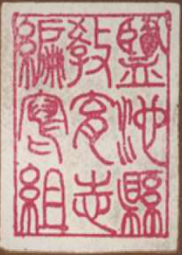 鹽池縣
教育志
編寫組